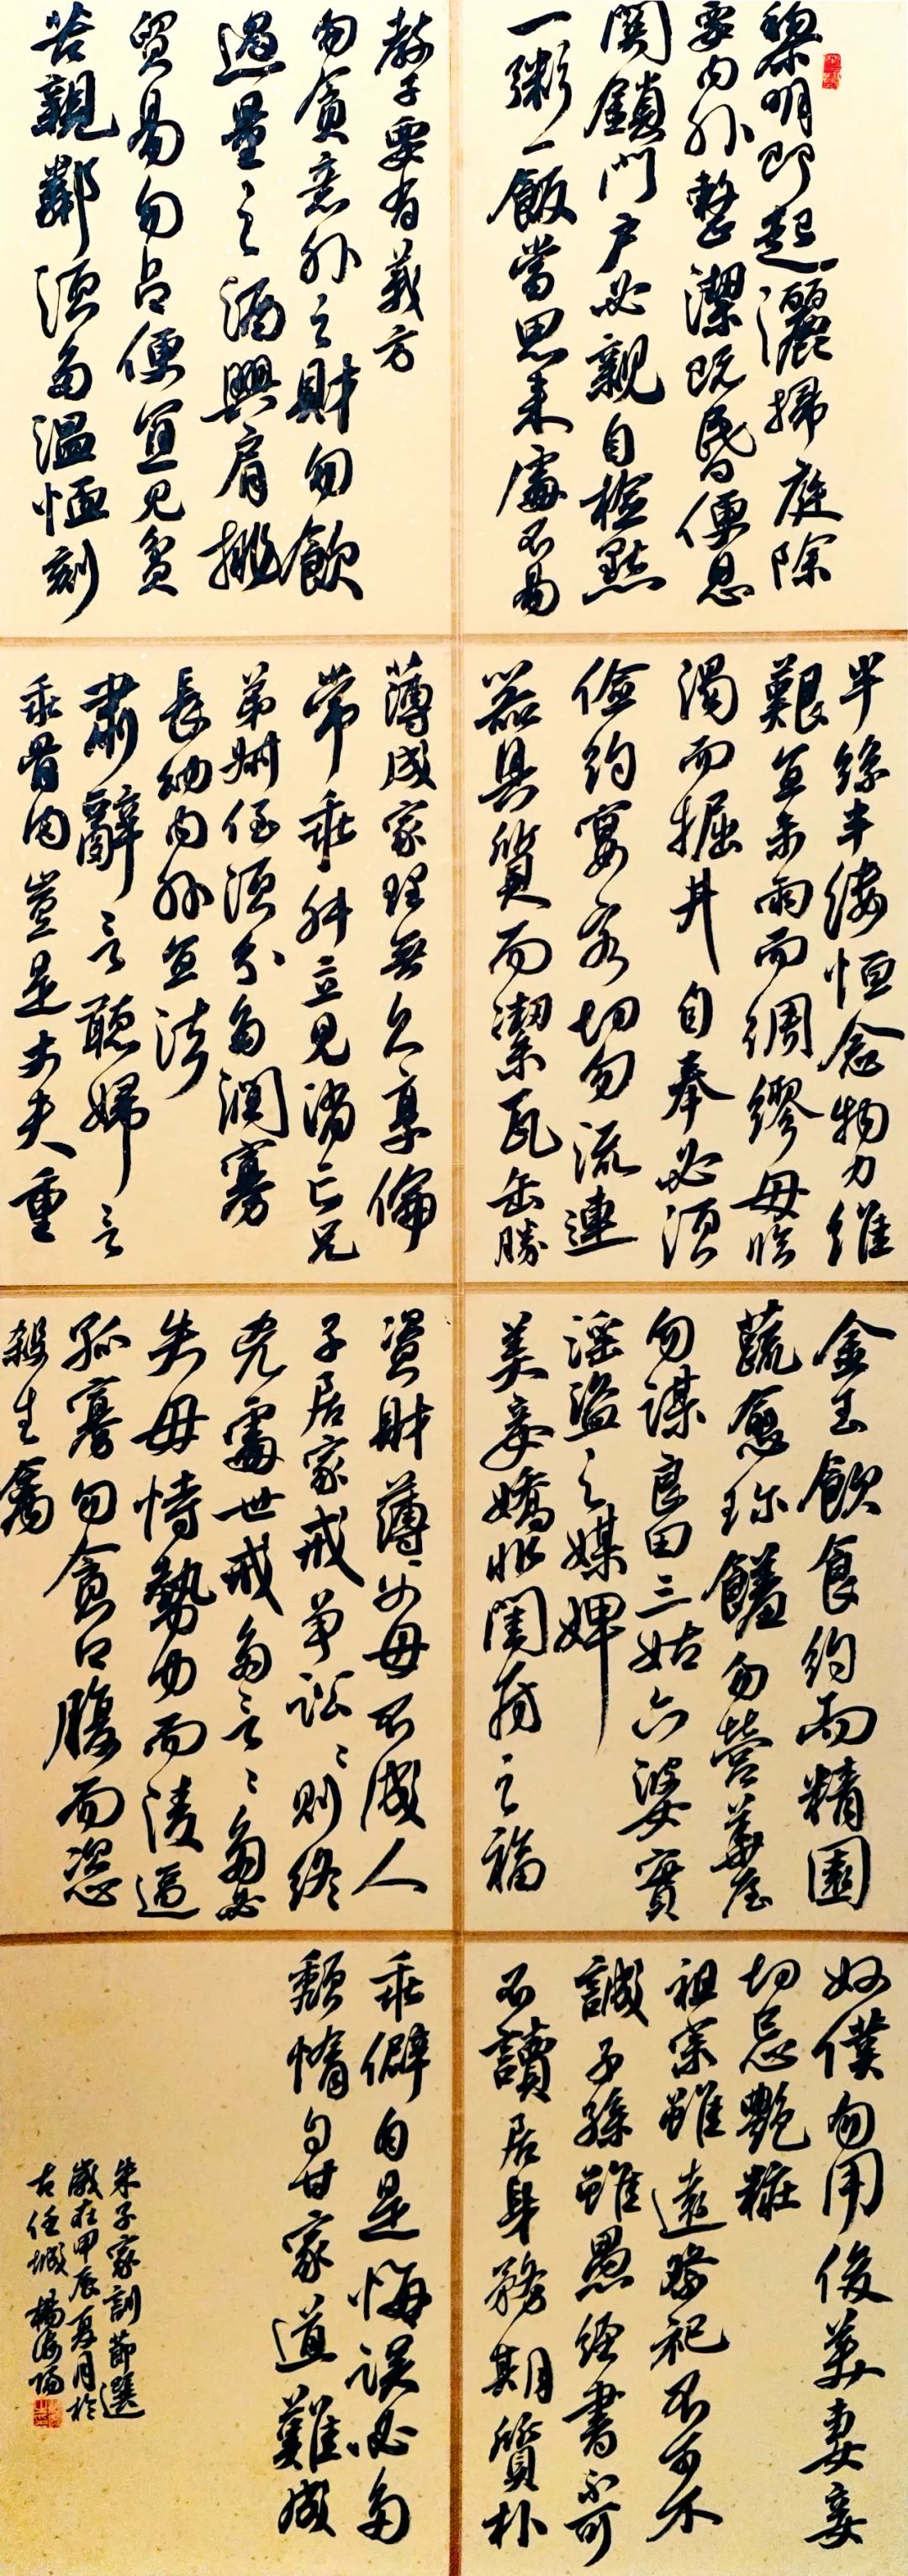 黎明即起灑掃庭除
要內外整潔既昏便息
關鎖門戶必親自檢點
一粥一飯當思來處不易
半絲半縷恒念物力維
艱宜未雨而綢繆毋臨
渴而掘井自奉必須
儉約宴客切勿流連
器具質而潔瓦缶勝
金玉飲食約而精園
蔬愈珍饈勿營華屋
勿謀良田三姑六婆實
淫盜之媒婢
美妾嬌非閨房之福
奴僕勿用俊美妻妾
切忌艷粧
祖宗雖遠祭祀不可不
誠子孫雖愚經書不可
不讀居身務期質朴
教子要有義方
勿貪意外之財勿飲
過量之酒與肩挑
貿易勿占便宜見貧
苦親鄰須多溫恤刻
薄成家理無久享倫
常乖舛立見消亡兄
弟叔侄須分多潤寡
長幼內外宜法
肅辭言聽婦言
乖骨肉豈是丈夫重
資財薄父母不成人
子居家戒爭訟訟則終
凶處世戒多言言多必
失毋恃勢力而淩逼
孤寡勿貪口腹而恣
殺生禽
乖僻自是悔誤必多
頹惰自甘家道難成
朱子家訓節選
歲在甲辰夏月於
古任城楊海